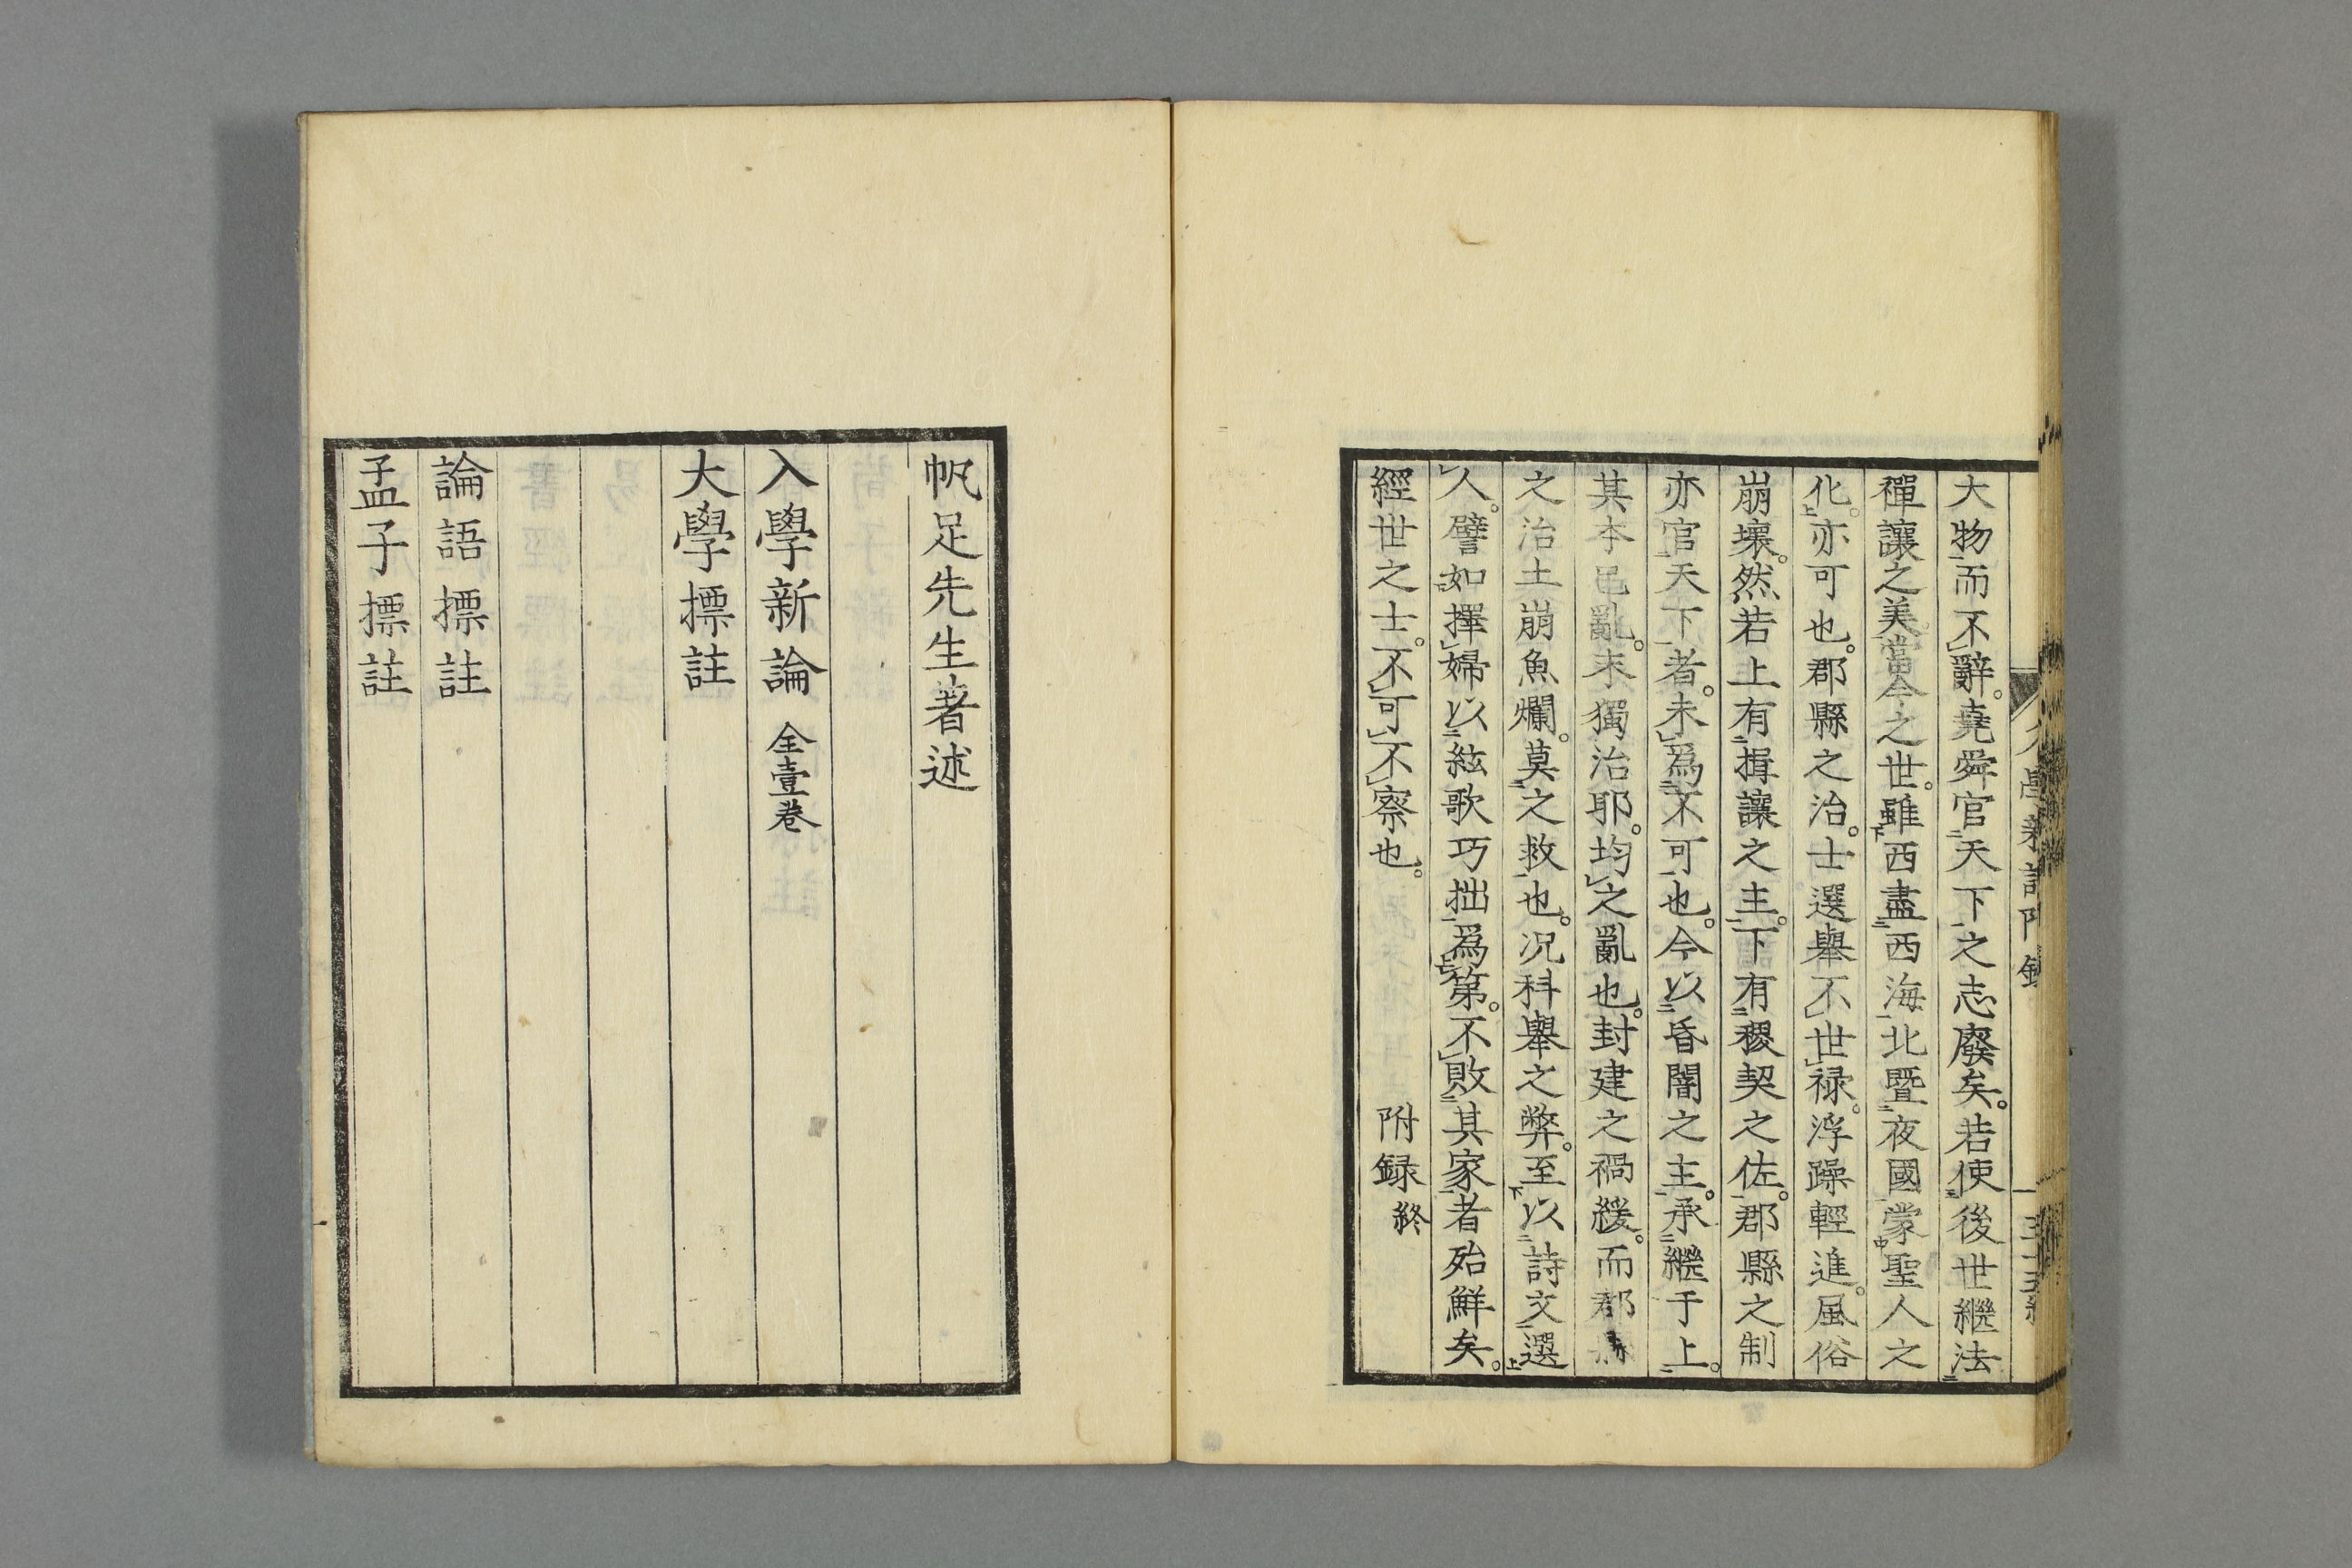 大物而不辭。堯舜官天下之志廢矣。若使後世繼法
禪讓之美。當今之世。雖西盡西海北曁夜國蒙聖人之
化。亦可也。郡縣之治。士選擧不世祿。浮躁輕進。風俗
崩壞。然若上有揖讓之主。下有稷契之佐。郡縣之制
亦官天下者。未爲不可也。今以昏闇之主。承繼于上。
其本已亂。末獨治耶。均之亂也。封建之禍緩。而郡縣
之治土崩魚爛。莫之救也。况科擧之弊。至以詩文選
人。譬如擇婦以絃歌巧拙爲第。不敗其家者殆鮮矣。
經世之士。不可不察也。
附録終
帆足先生著述
入學新論 全壹卷
大學摽註
論語摽註
孟子摽註